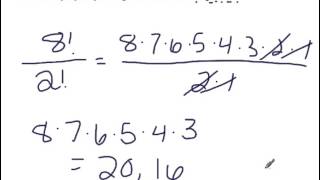 8! / 2! = 8·7·6·5·4·3·2·1 / 2·1
8·7·6·5·4·3
= 20,16